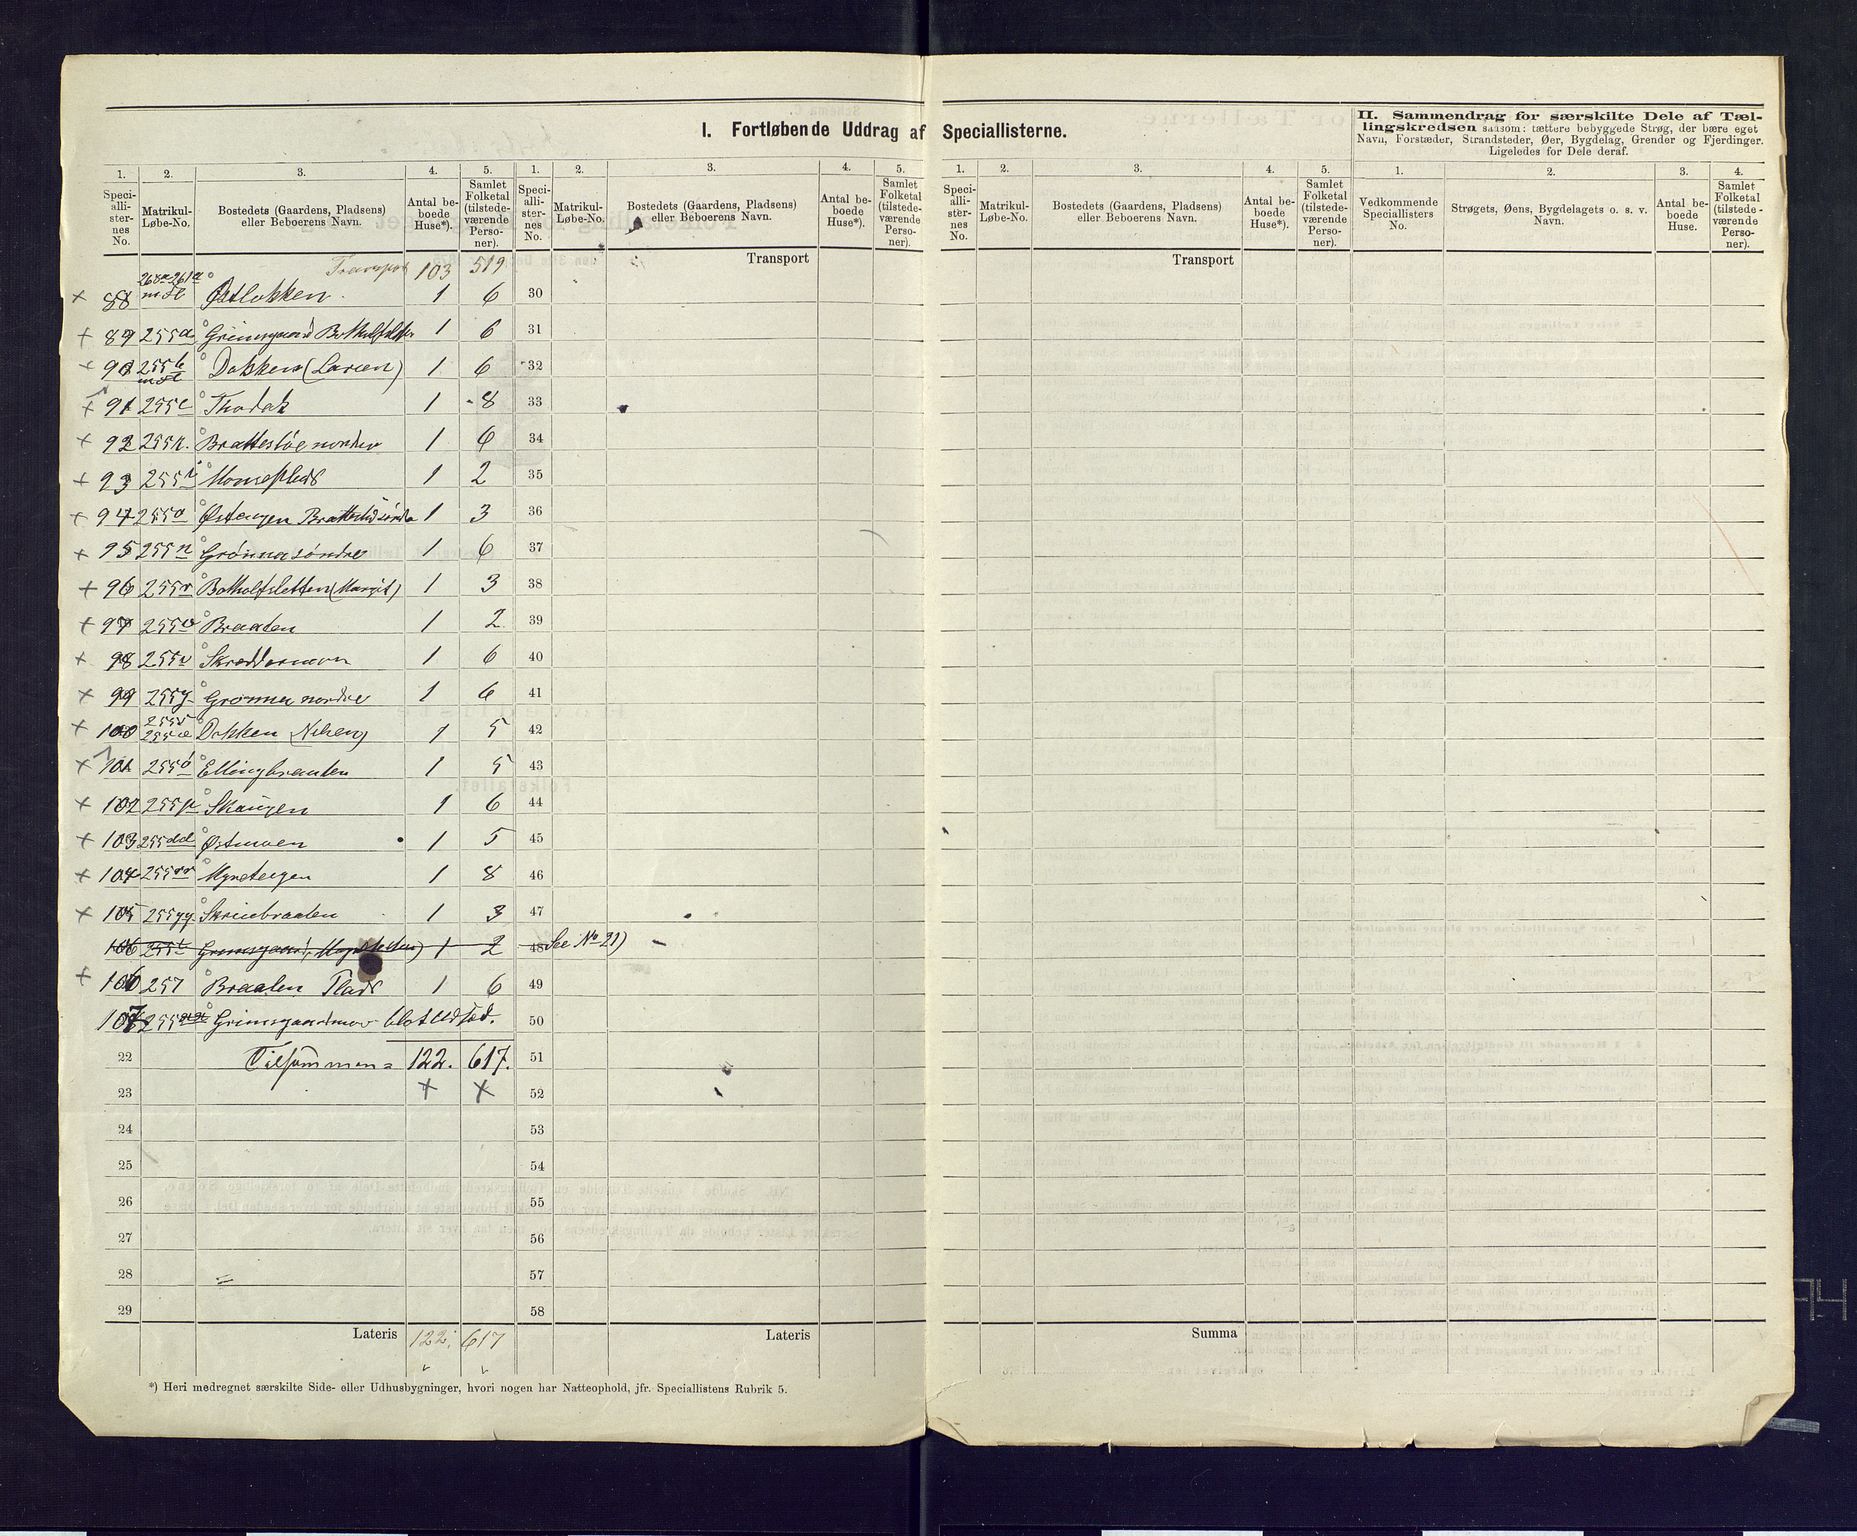 I. Fortløbende Uddrag af Speciallisterne.
II. Sammendrag for særskilte Dele af Tæl-
lingskredsen saasom: tættere bebyggede Strøg, der bære eget
Navn, Forstæder, Strandsteder, Øer, Bygdelag, Grender og Fjerdinger.
Ligeledes for Dele deraf.
1. 2. 3. 4. 5. 1. 2. 3. 4. 5. 1. 2. 3. 4. 5. 1. 2. 3. 4.
Speci-alli-ster-nes No. Matrikul-Løbe-No. Bostedets (Gaardens, Pladsens) eller Beboerens Navn. Antal be-boede Huse*). Samlet Folketal (tilstede-værende Perso-ner).
Speci-alli-ster-nes No. Matrikul-Løbe-No. Bostedets (Gaardens, Pladsens) eller Beboerens Navn. Antal be-boede Huse*). Samlet Folketal (tilstede-værende Perso-ner).
Speci-alli-ster-nes No. Matrikul-Løbe-No. Bostedets (Gaardens, Pladsens) eller Beboerens Navn. Antal be-boede Huse*). Samlet Folketal (tilstede-værende Perso-ner).
Vedkommende Speciallisters No. Strøgets, Øens, Bygdelagets o. s. v. Navn. Antal be-boede Huse. Samlet Folketal (tilstede-værende Perso-ner).
Transport 103 519 Transport Transport
× 88 268a-261a m fl Østlokken 1 6 30
+ 89 255a Grimsgaard 1 6 31
+ 90 255b m fl Dokken (Larsen) 1 6 32
+ 91 255c Thodok 1 8 33
+ 92 255p. Brattestøe nordre 1 6 34
+ 93 255i Monseplads 1 2 35
+ 94 255o Østengen 1 3 36
+ 95 255n Grønna søndre 1 6 37
+ 96 255r Botholfsletten (Margit) 1 3 38
+ 97 Braaten 1 2 39
+ 98 255v Skreddermoen 1 6 40
+ 99 255y Grønna nordre 1 6 41
+ 100 Dokken (Nilsen) 1 5 42
× 101 255ö Ellingbraaten 1 5 43
+ 102 Skaugen 1 6 44
+ 103 255dd Østmoen 1 5 45
+ 104 255rr Myretegen 1 8 46
+ 105 255yy Skrinbraaten 1 3 47
106 255t Grimsgaard 1 2 48 See No 21)
+ 106 257 Braaten Plads 1 6 49
107 Grimsgaardmoe 50
22 Tilsammen = 122. 617. 51
23 × × 52
24 53
25 54
26 55
27 56
28 57
29 58
Lateris 122. 617 Lateris Summa
*) Heri medregnet særskilte Side- eller Udhusbygninger, hvori nogen har Natteophold, jfr. Speciallistens Rubrik 5.